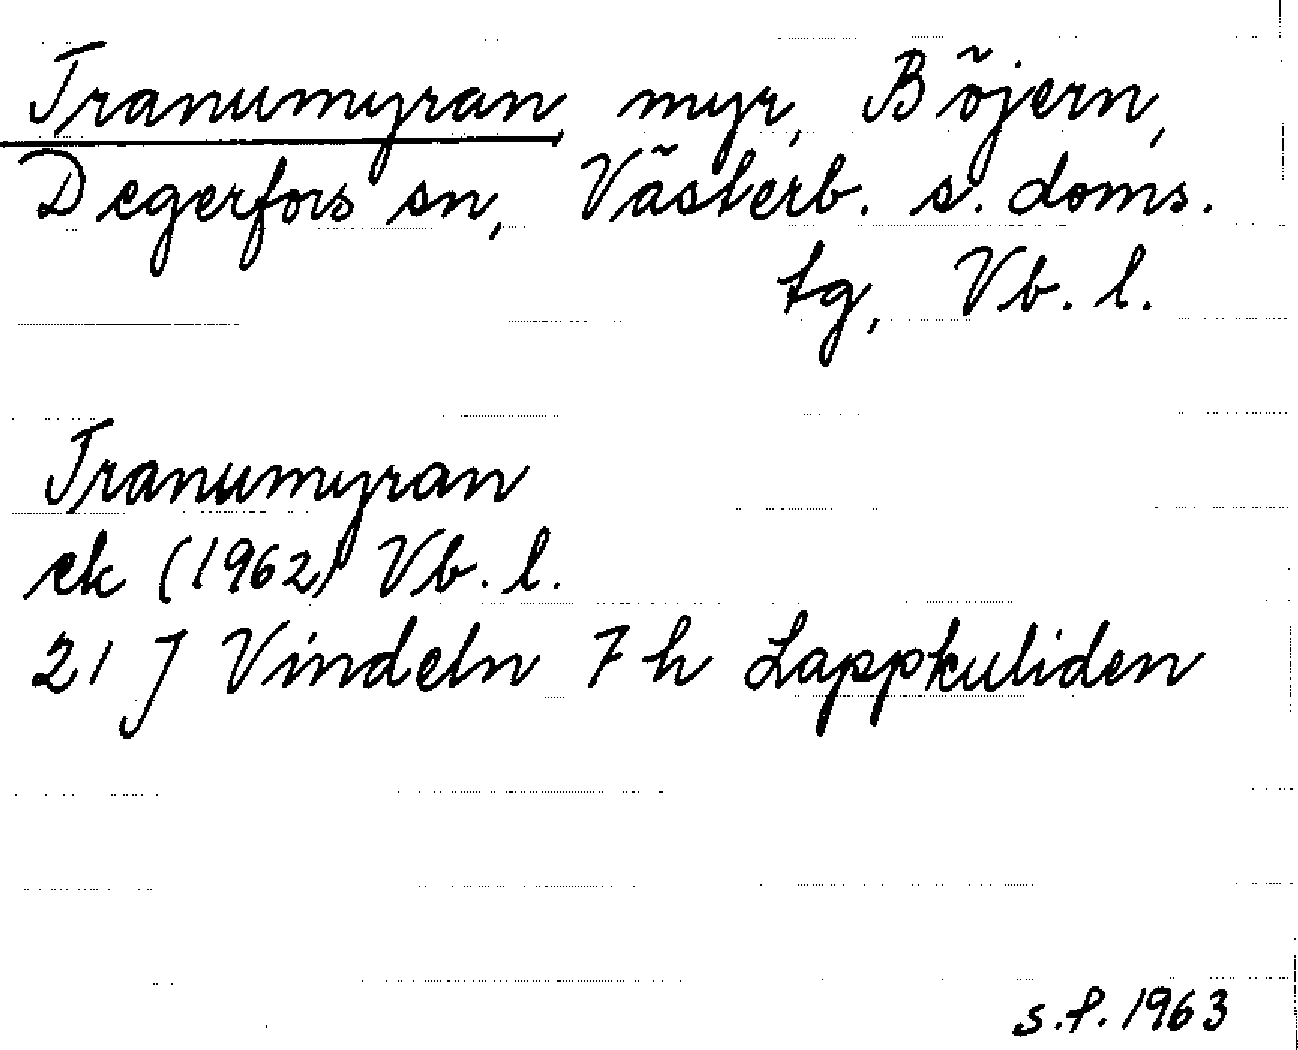 Tranumyran, myr, Böjern,
Degerfors sn, Västerb. s. doms.
tg, Vb. l.
Tranumyran
ek (1962) Vb. l.
21 J Vindeln 7 h Lappkuliden
s.f. 1963